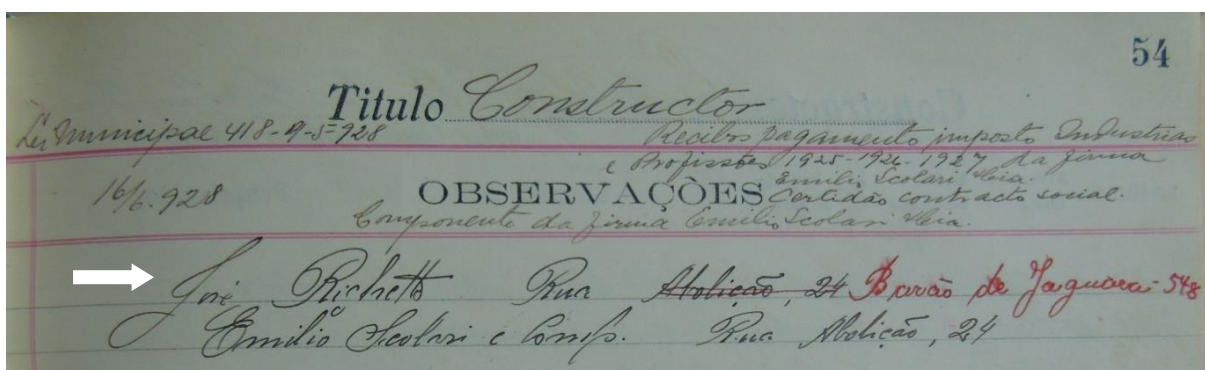 54
Titulo Constructor
Lei Municipal 418-9-5-928
Recibos pagamento imposto Industrias
e Profissões 1925-1926-1927 da firma
Emilio Scolari &Cia.
16/6.928
OBSERVAÇÕES Certidão contracto social.
Componente da firma Emilio Scolari &Cia.
José Richetto Rua Abolição, 24 Barão de Jaguara-548
Emilio Scolari e Comp. Rua Abolição, 24